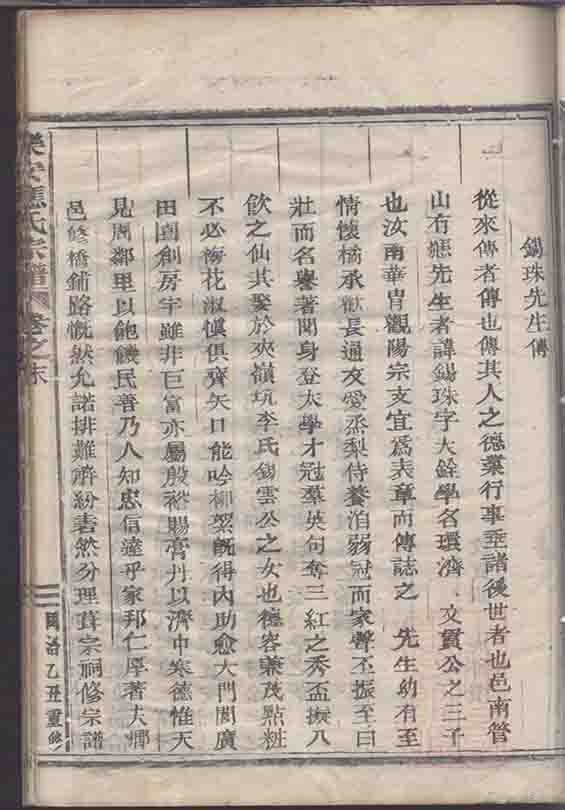 錫珠先生傳
從來傳者傳也傳其人之德業行事垂諸後世者也邑南管
山有應先生者諱錫珠字大銓學名環濟 文貫公之三子
也汝南華胄觀陽宗支宜為表章而傳誌之 先生幼有至
情懷橘承歡長通友愛烝梨侍養洎弱冠而家聲丕振至曰
壯而名譽著聞身登太學才冠羣英句奪三紅之秀盃擬八
飲之仙其娶於夾嶺坑李氏錫雲公之女也德容兼茂點粧
不必梅花淑慎俱齊矢口能吟柳絮旣得內助愈大門閭廣
田園創房宇雖非巨富亦屬殷裕賜膏丹以濟中寒德惟天
見周鄰里以飽饑民善乃人知忠信達乎家邦仁厚著夫鄉
邑修橋鋪路慨然允諾排難解紛善然分理葺宗祠修宗譜
樂安應氏宗譜 卷之末
同治乙丑重修